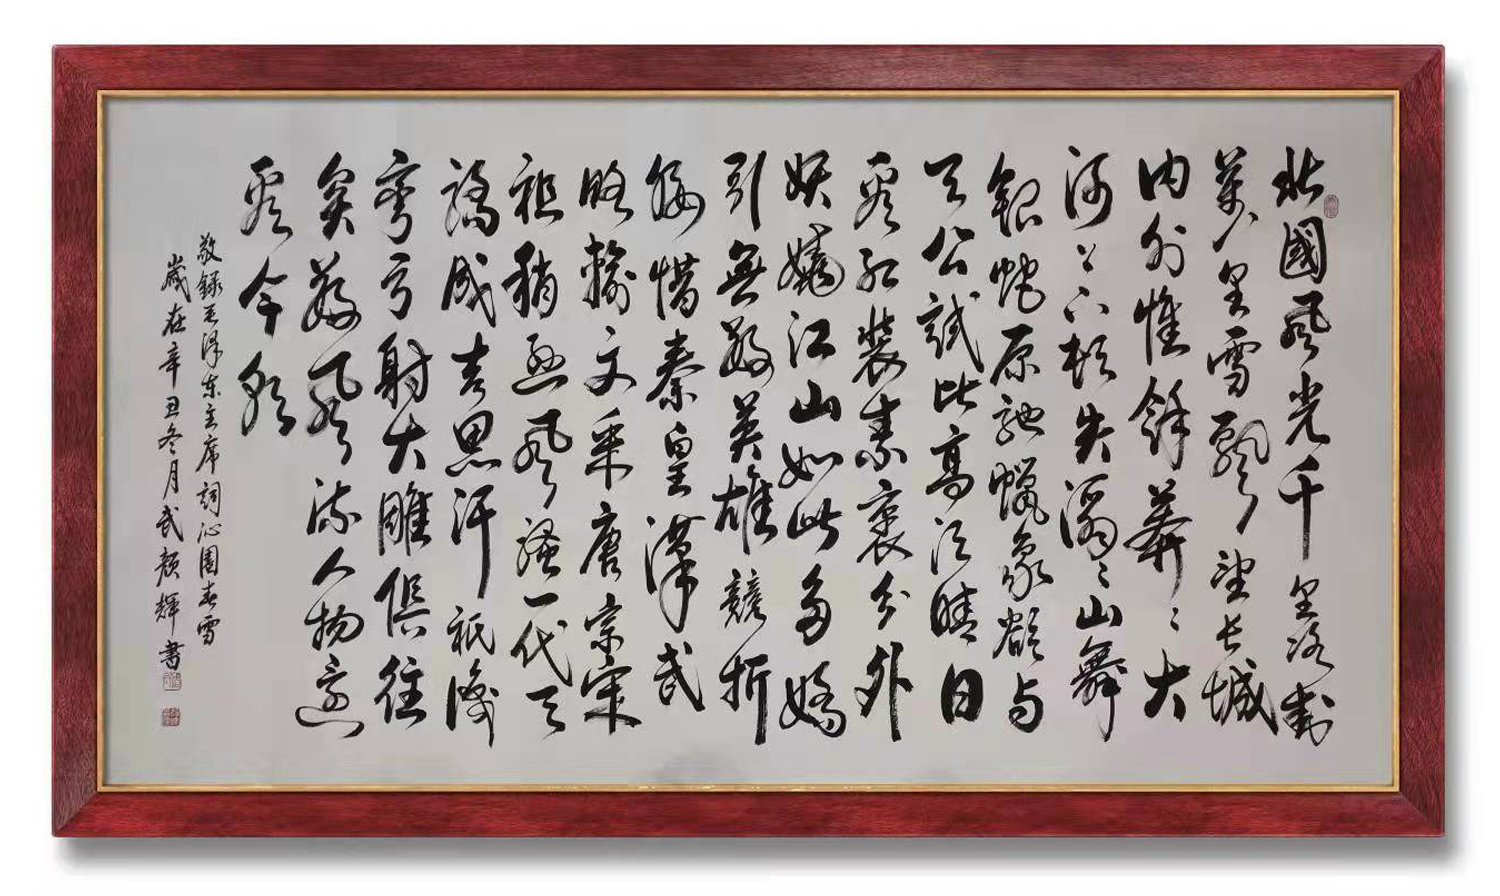 北國風光千里冰封
萬里雪飄望長城
内外惟餘莽〻大
河上下頓失滔〻山舞
銀蛇原馳蠟象欲与
天公試比高須晴日
看紅裝素裹分外
妖嬈江山如此多嬌
引無數英雄競折
腰惜秦皇漢武
略輸文采唐宗宋
祖稍遜風騷一代天
驕成吉思汗祇識
彎弓射大雕俱往
矣數風流人物還
看今朝
敬錄毛澤东主席詞沁園春雪
歲在辛丑冬月武顏輝書